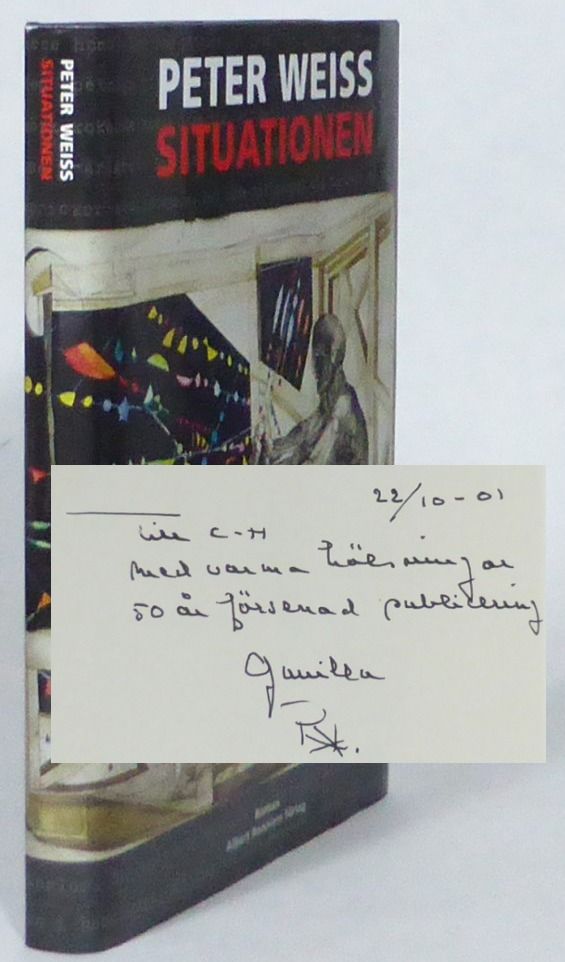 PETER WEISS
SITUATIONEN
PETER WEISS
SITUATIONEN
22/10-01
till C-H
med varma hälsningar
50 år försenad publicering
Gunilla
Roman
Albert Bonniers Förlag